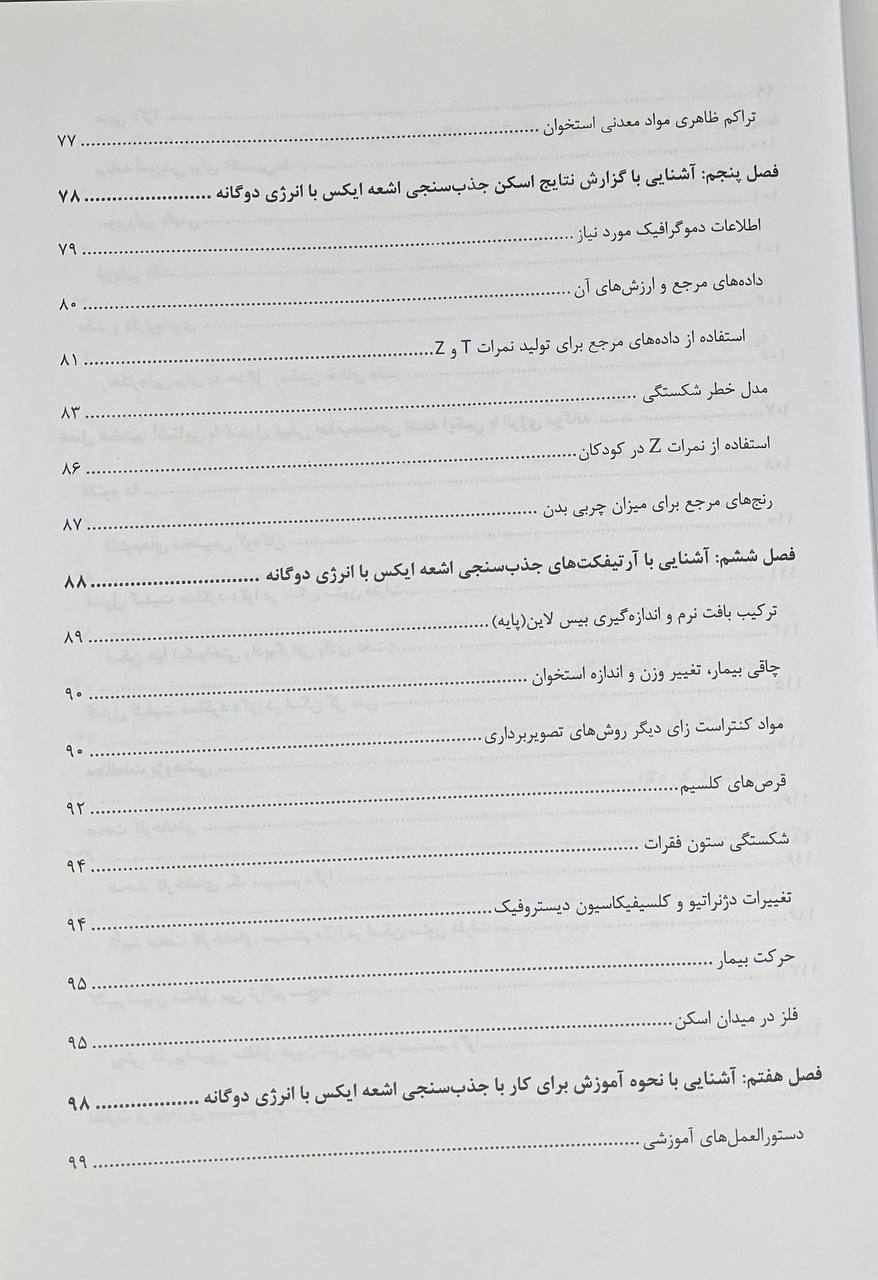 تراکم ظاهری مواد معدنی استخوان ........ ۷۷
فصل پنجم: آشنایی با گزارش نتایج اسکن جذب‌سنجی اشعه ایکس با انرژی دوگانه ........ ۷۸
اطلاعات دموگرافیک مورد نیاز ........ ۷۹
داده‌های مرجع و ارزش‌های آن ........ ۸۰
استفاده از داده‌های مرجع برای تولید نمرات T و Z ........ ۸۱
مدل خطر شکستگی ........ ۸۳
استفاده از نمرات Z در کودکان ........ ۸۶
رنج‌های مرجع برای میزان چربی بدن ........ ۸۷
فصل ششم: آشنایی با آرتیفکت‌های جذب‌سنجی اشعه ایکس با انرژی دوگانه ........ ۸۸
ترکیب بافت نرم و اندازه‌گیری بیس لاین(پایه) ........ ۸۹
چاقی بیمار، تغییر وزن و اندازه استخوان ........ ۹۰
مواد کنتراست زای دیگر روش‌های تصویربرداری ........ ۹۰
قرص‌های کلسیم ........ ۹۲
شکستگی ستون فقرات ........ ۹۴
تغییرات دژنراتیو و کلسیفیکاسیون دیستروفیک ........ ۹۴
حرکت بیمار ........ ۹۵
فلز در میدان اسکن ........ ۹۵
فصل هفتم: آشنایی با نحوه آموزش برای کار با جذب‌سنجی اشعه ایکس با انرژی دوگانه ........ ۹۸
دستورالعمل‌های آموزشی ........ ۹۹